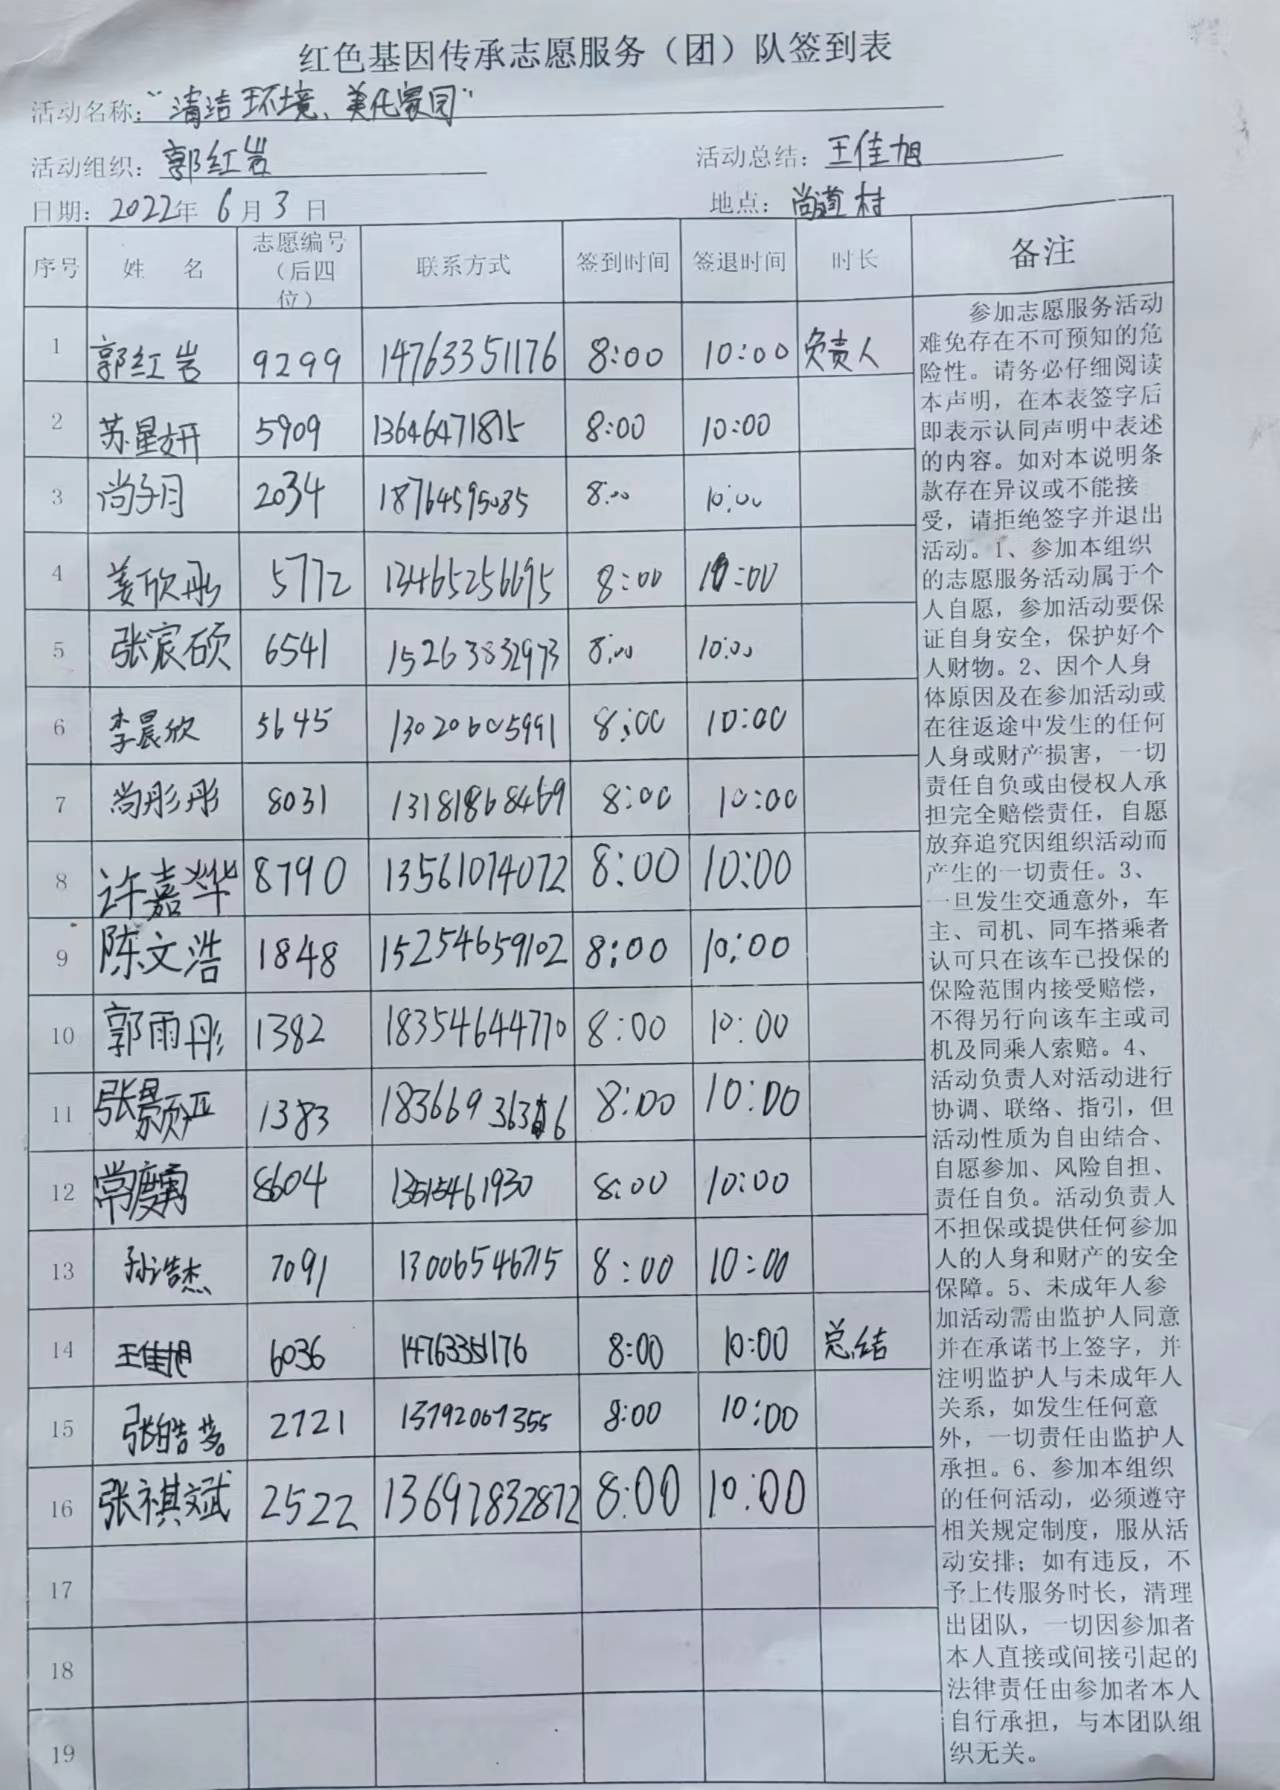 红色基因传承志愿服务（团）队签到表
活动名称：“清洁环境、美化家园”
活动组织：郭红岩 活动总结：王佳旭
日期：2022年 6月 3日 地点：尚道村
序号 姓 名 志愿编号（后四位） 联系方式 签到时间 签退时间 时长 备注
1 郭红岩 9299 14763351176 8:00 10:00 负责人
2 苏星妍 5909 13646471815 8:00 10:00
3 尚子月 2034 18764595085 8:00 10:00
4 姜欣彤 5772 13465256695 8:00 10:00
5 张宸硕 6541 15263832973 8:00 10:00
6 李晨欣 5645 13020605991 8:00 10:00
7 尚彤彤 8031 13181868469 8:00 10:00
8 许嘉烨 8790 13561074072 8:00 10:00
9 陈文浩 1848 15254659102 8:00 10:00
10 郭雨彤 1382 18354644770 8:00 10:00
11 张颢严 1383 8:00 10:00
12 8604 13515461930 8:00 10:00
13 孙浩杰 7091 13006546715 8:00 10:00
14 王佳旭 6036 14763351176 8:00 10:00 总结
15 张皓茗 2721 13792067355 8:00 10:00
16 张祺斌 2522 13697832872 8:00 10:00
17
18
19
参加志愿服务活动
难免存在不可预知的危
险性。请务必仔细阅读
本声明，在本表签字后
即表示认同声明中表述
的内容。如对本说明条
款存在异议或不能接
受，请拒绝签字并退出
活动。1、参加本组织
的志愿服务活动属于个
人自愿，参加活动要保
证自身安全，保护好个
人财物。2、因个人身
体原因及在参加活动或
在往返途中发生的任何
人身或财产损害，一切
责任自负或由侵权人承
担完全赔偿责任，自愿
放弃追究因组织活动而
产生的一切责任。3、
一旦发生交通意外，车
主、司机、同车搭乘者
认可只在该车已投保的
保险范围内接受赔偿，
不得另行向该车主或司
机及同乘人索赔。4、
活动负责人对活动进行
协调、联络、指引，但
活动性质为自由结合、
自愿参加、风险自担、
责任自负。活动负责人
不担保或提供任何参加
人的人身和财产的安全
保障。5、未成年人参
加活动需由监护人同意
并在承诺书上签字，并
注明监护人与未成年人
关系，如发生任何意
外，一切责任由监护人
承担。6、参加本组织
的任何活动，必须遵守
相关规定制度，服从活
动安排；如有违反，不
予上传服务时长，清理
出团队，一切因参加者
本人直接或间接引起的
法律责任由参加者本人
自行承担，与本团队组
织无关。